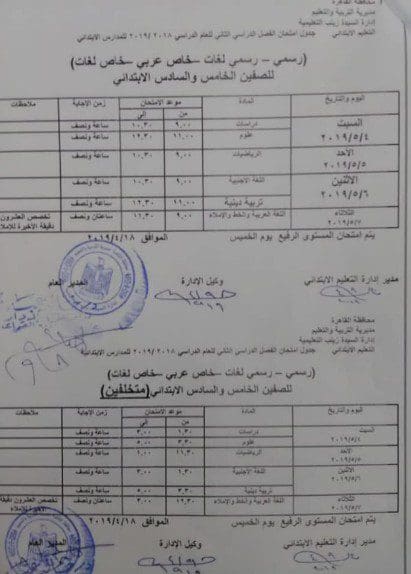 محافظة القاهرة
مديرية التربية والتعليم
إدارة السيدة زينب التعليمية
التعليم الابتدائي جدول امتحان الفصل الدراسي الثاني للعام الدراسي ٢٠١٨ /٢٠١٩ للمدارس الابتدائي
(رسمي – رسمي لغات –خاص عربي –خاص لغات)
للصفين الخامس والسادس الابتدائي
اليوم والتاريخ المادة موعد الامتحان زمن الإجابة ملاحظات
من إلى
السبت ٢٠١٩/٥/٤ دراسات ٩،٠٠ ١٠،٣٠ ساعة ونصف
علوم ١١،٠٠ ١٢،٣٠ ساعة ونصف
الأحد ٢٠١٩/٥/٥ الرياضيات ٩،٠٠ ١٠،٣٠ ساعة ونصف
الاثنين ٢٠١٩/٥/٦ اللغة الاجنبية ٩،٠٠ ١٠،٣٠ ساعة ونصف
تربية دينية ١١،٠٠ ١٢،٣٠ ساعة ونصف
الثلاثاء ٢٠١٩/٥/٧ اللغة العربية والخط والإملاء ٩،٠٠ ١١،٣٠ ساعتان ونصف تخصص العشرون دقيقة الأخيرة للإملاء
يتم امتحان المستوى الرفيع يوم الخميس الموافق ٢٠١٩/٤/١٨
مدير إدارة التعليم الابتدائي وكيل الإدارة المدير العام
محافظة القاهرة
مديرية التربية والتعليم
إدارة السيدة زينب التعليمية
التعليم الابتدائي جدول امتحان الفصل الدراسي الثاني للعام الدراسي ٢٠١٨ /٢٠١٩ للمدارس الابتدائية
(رسمي – رسمي لغات –خاص عربي –خاص لغات)
للصفين الخامس والسادس الابتدائي (متخلفين)
اليوم والتاريخ المادة موعد الامتحان زمن الإجابة ملاحظات
من إلى
السبت ٢٠١٩/٥/٤ دراسات ١،٣٠ ٣،٠٠ ساعة ونصف
علوم ٣،٣٠ ٥،٠٠ ساعة ونصف
الأحد ٢٠١٩/٥/٥ الرياضيات ١١،٣٠ ١،٠٠ ساعة ونصف
الاثنين ٢٠١٩/٥/٦ اللغة الاجنبية ١،٣٠ ٣،٠٠ ساعة ونصف
تربية دينية ٣،٣٠ ٥،٠٠ ساعة ونصف
الثلاثاء ٢٠١٩/٥/٧ اللغة العربية والخط والإملاء ١٢،٣٠ ٣،٠٠ ساعتان ونصف تخصص العشرون دقيقة الأخيرة للإملاء
يتم امتحان المستوى الرفيع يوم الخميس الموافق ٢٠١٩/٤/١٨
مدير إدارة التعليم الابتدائي وكيل الإدارة المدير العام